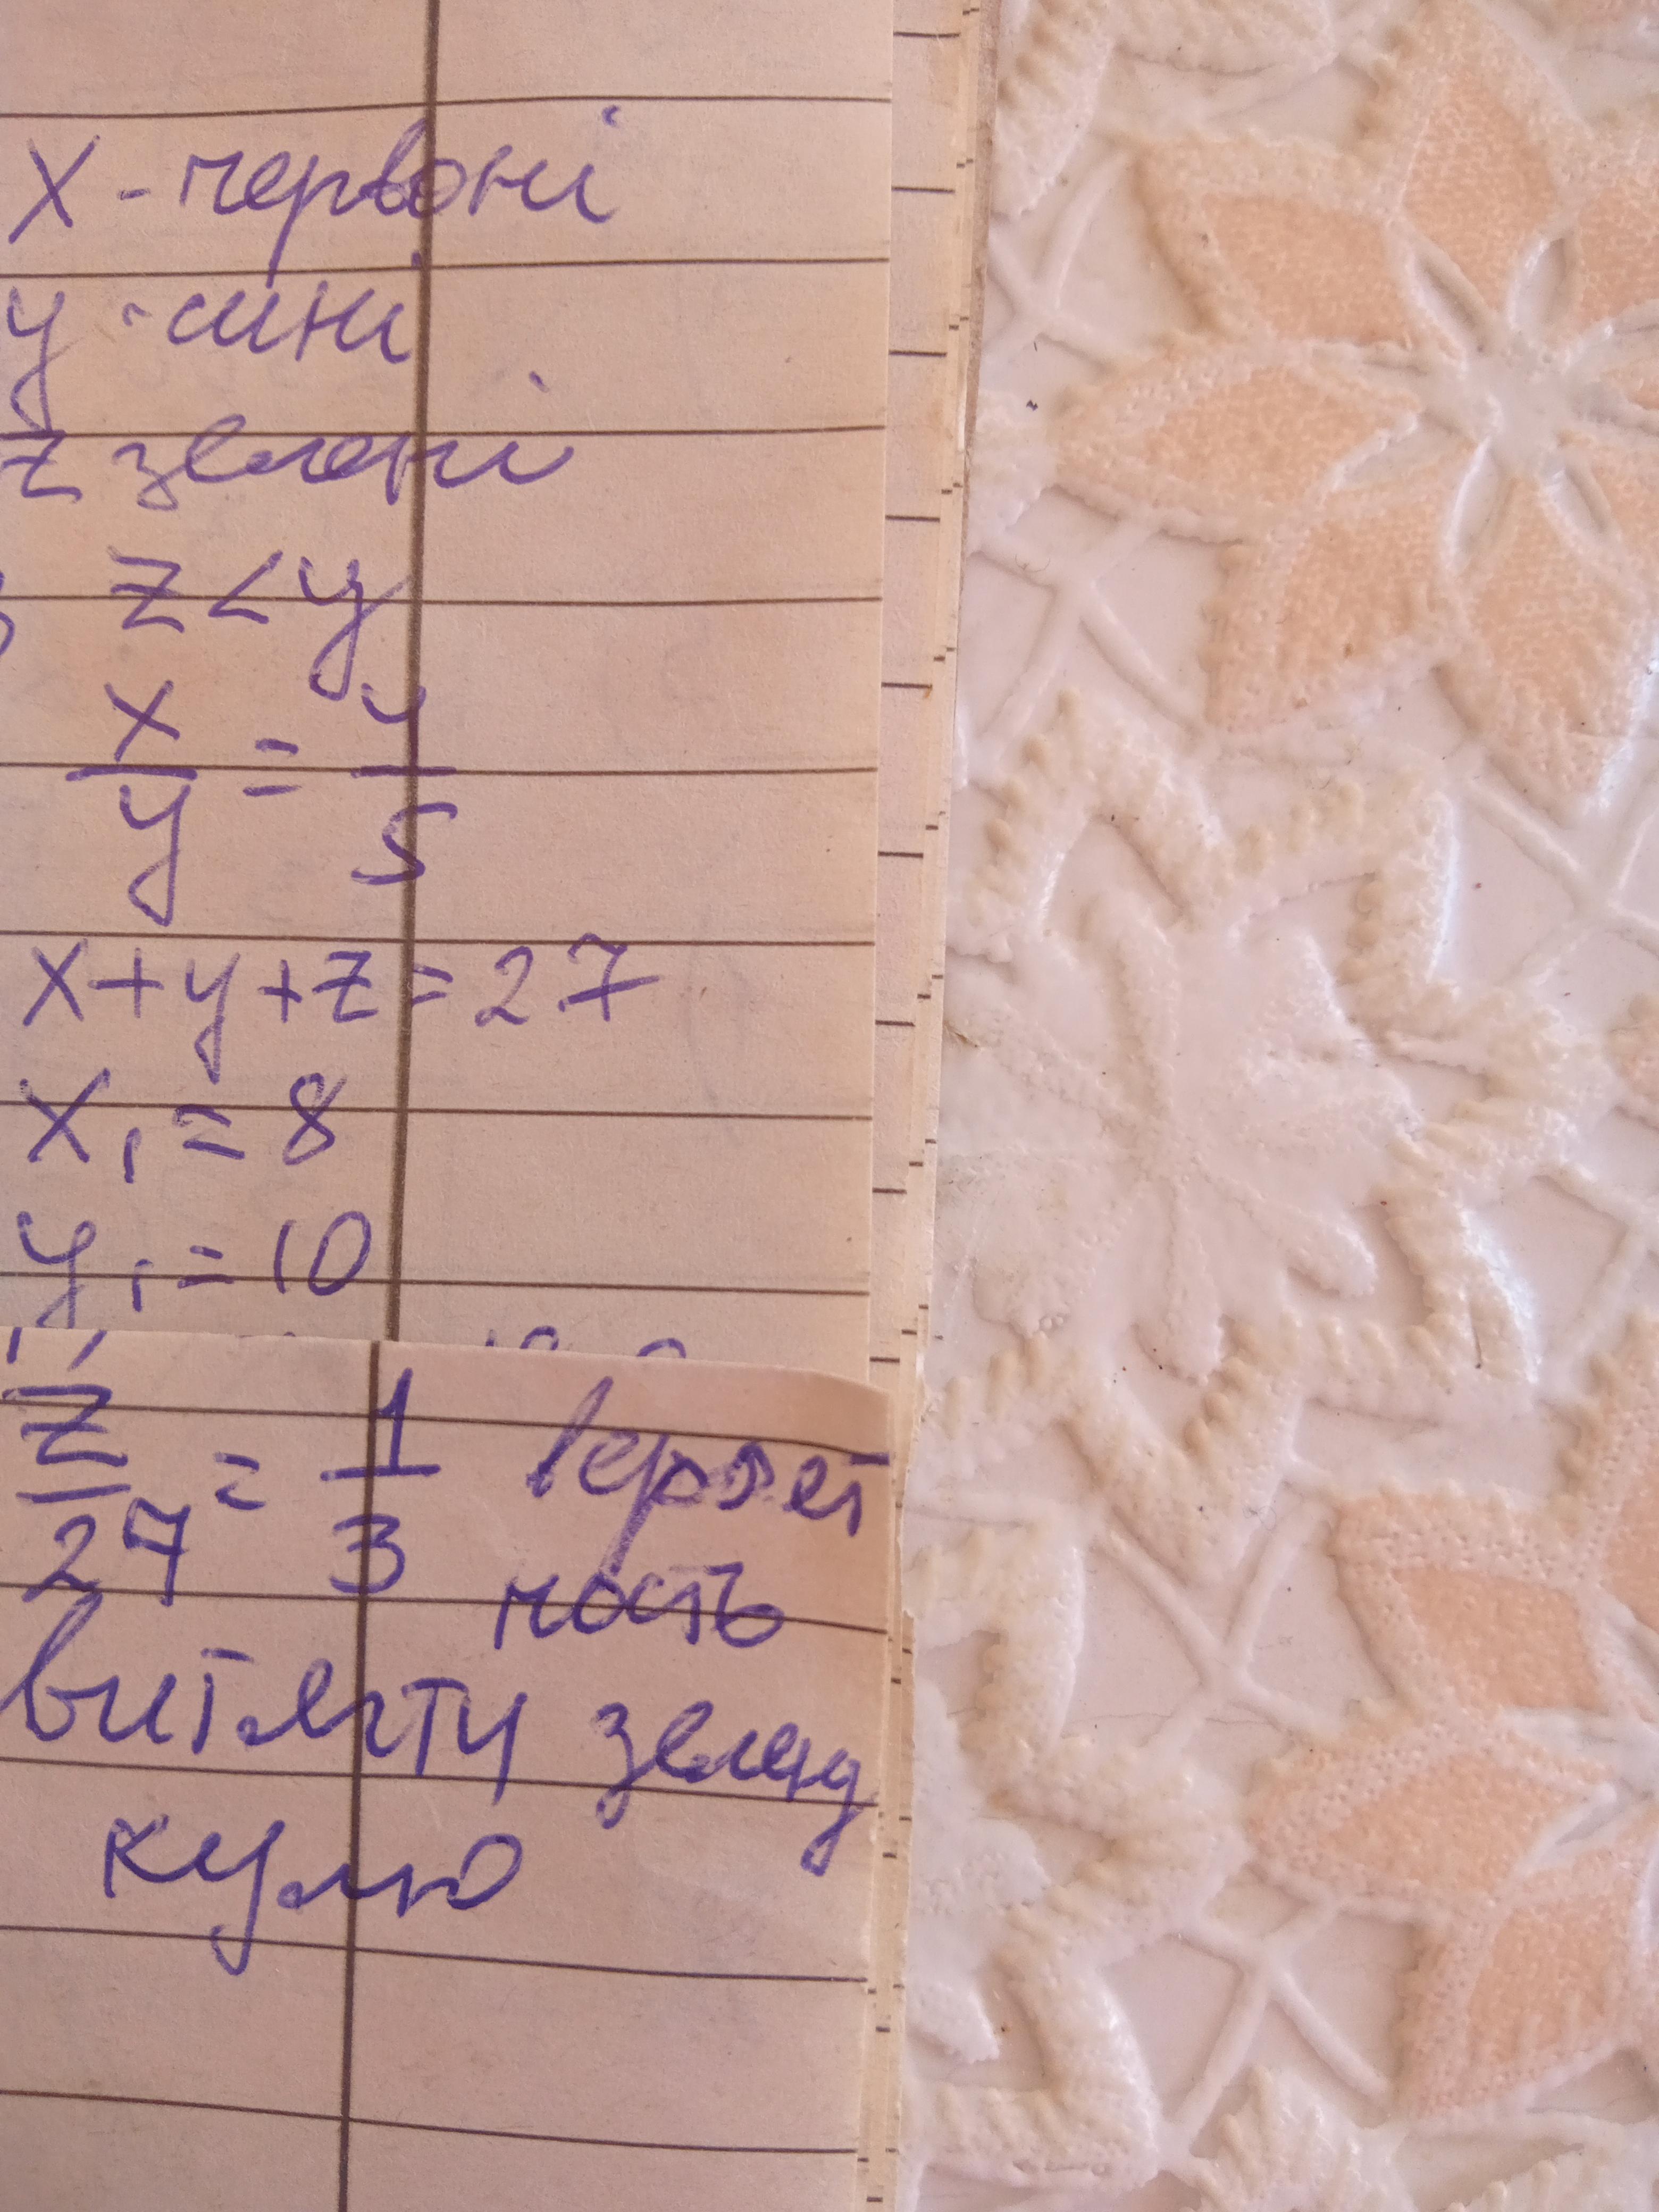 x - червоні
y - сині
z зелені
z < y
x/y = 4/5
x + y + z = 27
x₁ = 8
y₁ = 10
z/27 = 1/3 вероят
ность
витягти зелену
кулю